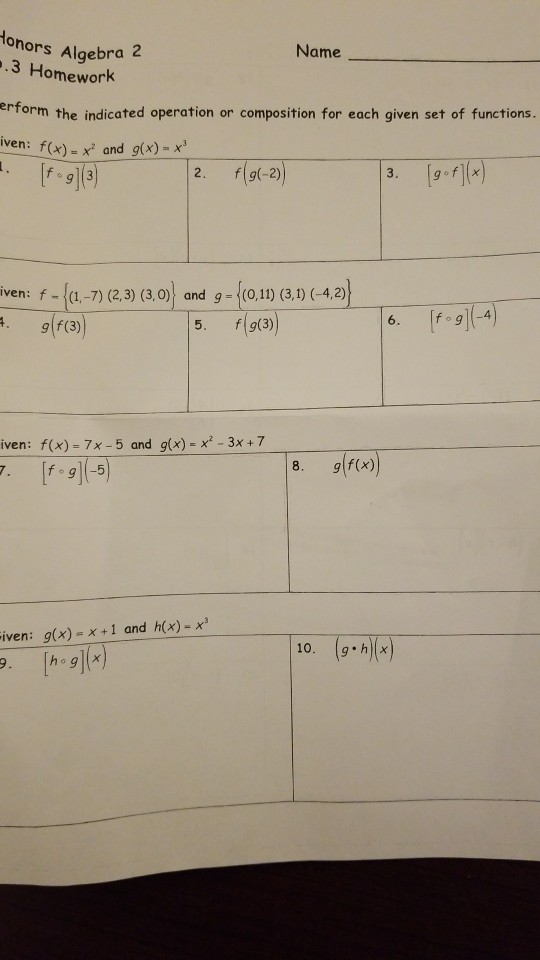 Honors Algebra 2 Name
.3 Homework
erform the indicated operation or composition for each given set of functions.
iven: f(x) = x² and g(x) = x³
1. [f∘g](3) 2. f(g(-2)) 3. [g∘f](x)
iven: f = {(1,-7) (2,3) (3,0)} and g = {(0,11) (3,1) (-4,2)}
4. g(f(3)) 5. f(g(3)) 6. [f∘g](-4)
iven: f(x) = 7x - 5 and g(x) = x² - 3x + 7
7. [f∘g](-5) 8. g(f(x))
Given: g(x) = x + 1 and h(x) = x³
9. [h∘g](x) 10. (g•h)(x)